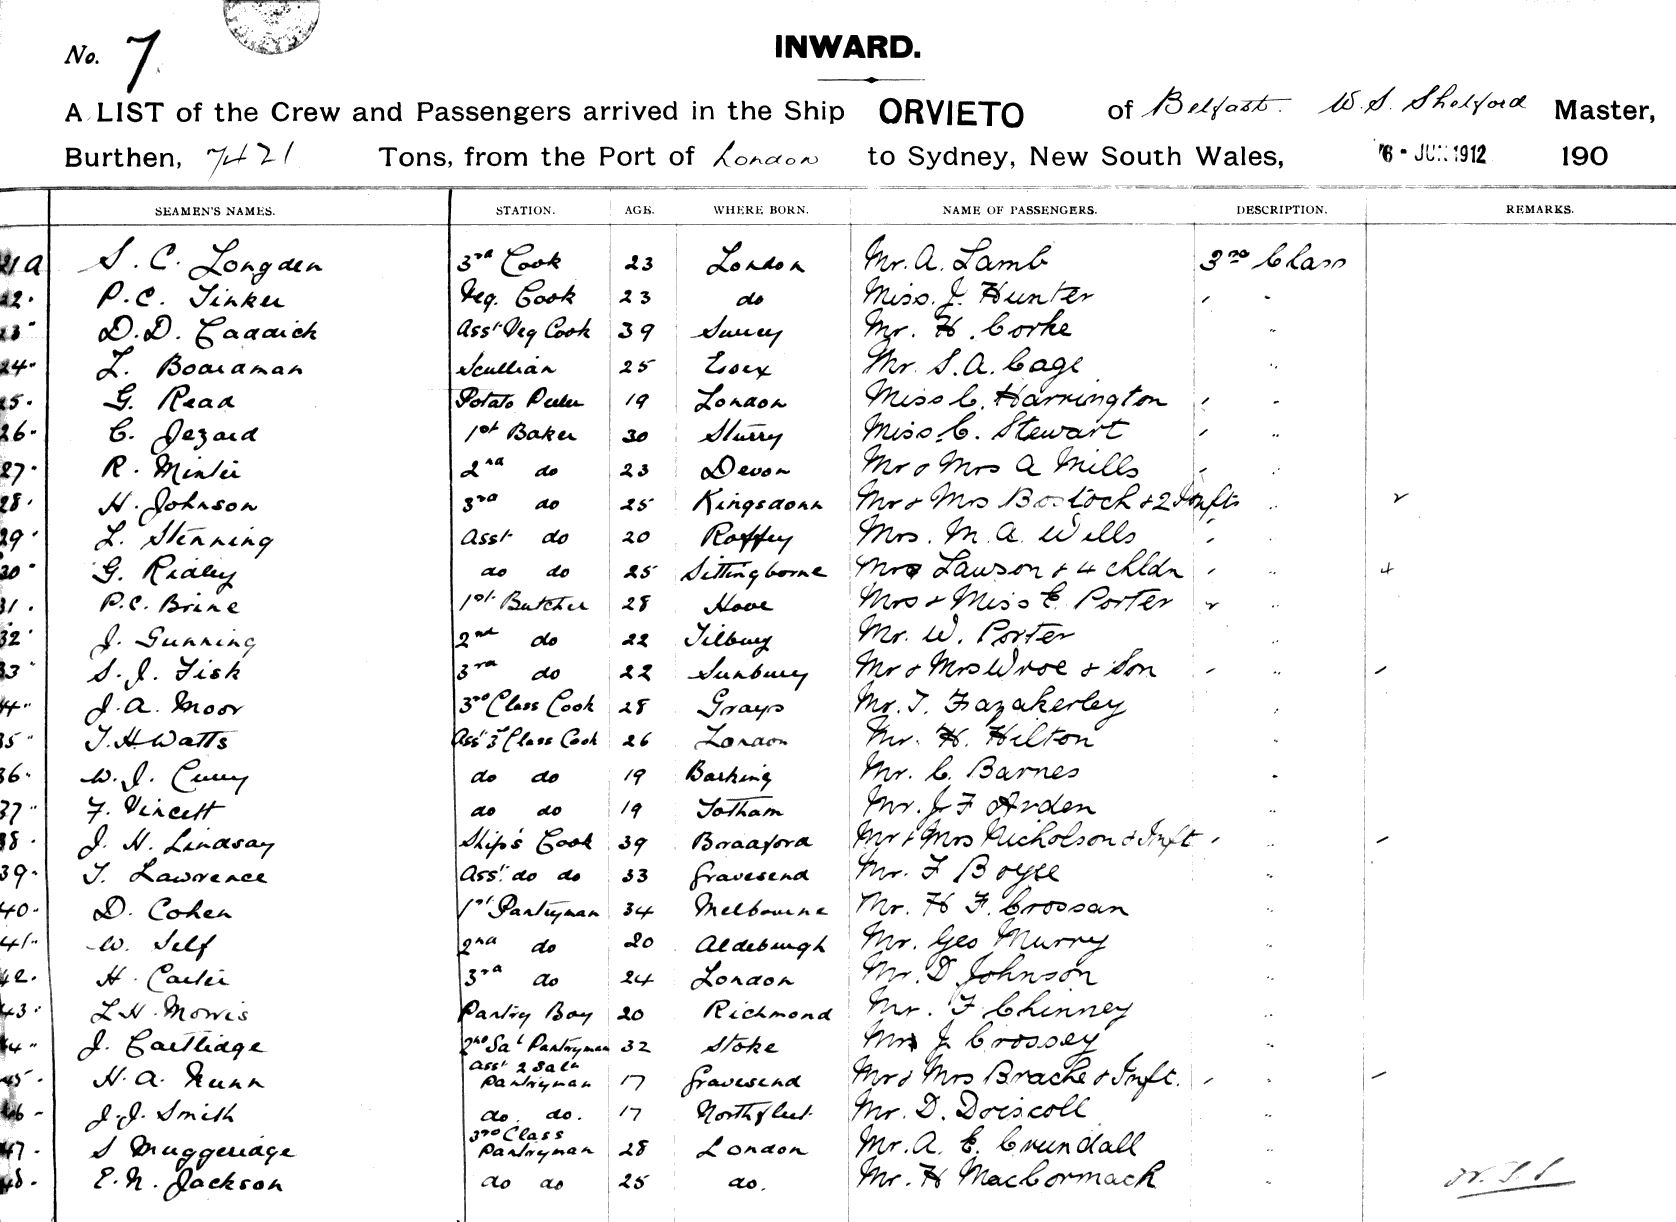 No. 7.
INWARD.
A LIST of the Crew and Passengers arrived in the Ship ORVIETO of Belfast. W. S. Shelford Master,
Burthen, 7421 Tons, from the Port of London to Sydney, New South Wales, 6 - JUN 1912 190
SEAMEN'S NAMES. STATION. AGE. WHERE BORN. NAME OF PASSENGERS. DESCRIPTION. REMARKS.
21a S. C. Longden 3rd Cook 23 London Mr. A. Lamb 3rd Class
22. P. C. Tinker Veg. Cook 23 do Miss. J. Hunter , "
23" D. D. Caddick Asst Veg Cook 39 Surrey Mr. H. Corke "
24" L. Boardman Scullian 25 Essex Mr. S. A. Cage "
25. G. Read Potato Peeler 19 London Miss C. Harrington , "
26. C. Jezard 1st Baker 30 Sturry Miss. C. Stewart , "
27. R. Minter 2nd do 23 Devon Mr & Mrs A Mills , "
28. H. Johnson 3rd do 25 Kingsdown Mr & Mrs Bostock & 2 Infts " 2
29. L. Stenning Asst do 20 Roffey Mrs. M. A. Wells , "
30" G. Ridley do do 25 Sittingborne Mrs Lawson & 4 chldn , " 4
31. P. C. Brine 1st Butcher 28 Hove Mrs & Miss E. Porter 2 "
32" J. Gunning 2nd do 22 Tilbury Mr. W. Porter "
33" S. J. Fisk 3rd do 22 Sunbury Mr & Mrs Wroe & Son , " /
34" J. A. Moor 3rd Class Cook 28 Grays Mr. T. Fazakerley "
35" T. H. Watts Asst 3 Class Cook 26 London Mr. H. Hilton "
36. W. J. Curry do do 19 Barking Mr. C. Barnes "
37" F. Vincett do do 19 Totham Mr. J F Arden "
38. J. H. Lindsay Ship's Cook 39 Bradford Mr & Mrs Nicholson & Inft , " /
39. T. Lawrence Asst. do do 33 Gravesend Mr. F Boyce "
40. D. Cohen 1st Pantryman 34 Melbourne Mr. H F. Crossan "
41" W. Self 2nd do 20 Aldeburgh Mr. Geo Murry "
42. H. Carter 3rd do 24 London Mr. D Johnson "
43. L. H. Morris Pantry Boy 20 Richmond Mr. F Chinney "
44" J. Cartlidge 2nd Sal Pantryman 32 Stoke Mr J. Crossey "
45. H. A. Nunn Asst 2 Saln Pantryman 17 Gravesend Mr & Mrs Brache & Inft. , " /
46" J. J. Smith do. do. 17 Northfleet Mr. D. Driscoll "
47. S Muggeridge 3rd Class Pantryman 28 London Mr. A. E. Crundall "
48. E. N. Jackson do do 25 do. Mr. H MacCormack "